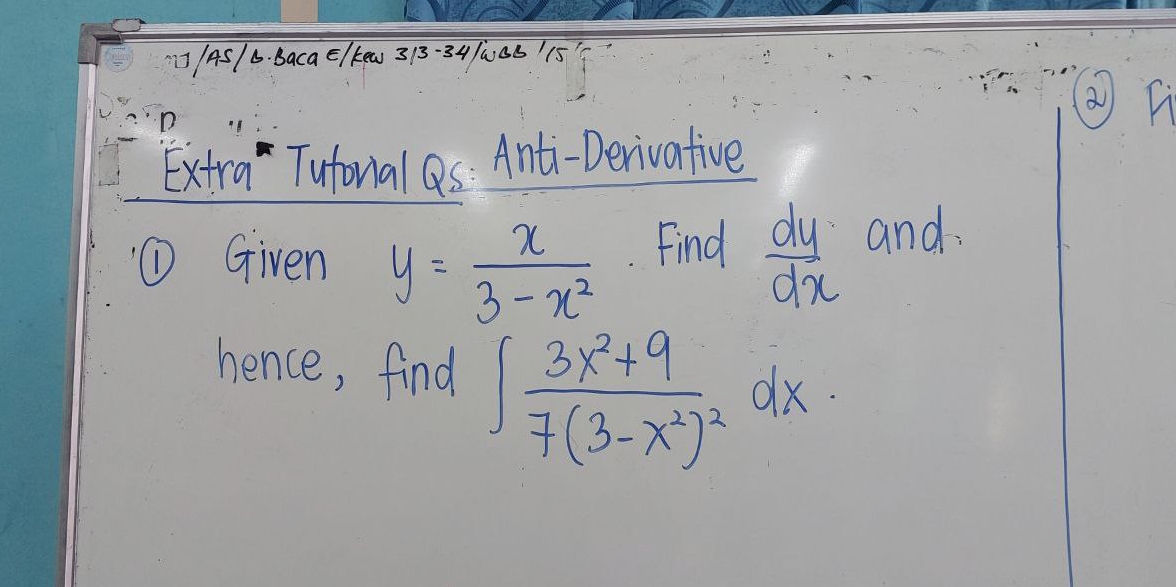 /AS/B.Baca E/kew 313-34/WBB '15
Extra Tutorial Qs: Anti-Derivative
① Given y = x / (3 - x²). Find dy/dx and
hence, find ∫ (3x²+9) / (7(3-x²)²) dx.
② Fi